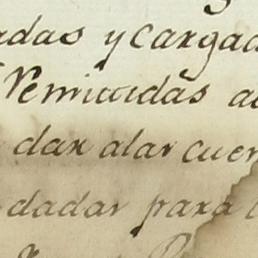 adas y cargad
Remitidas a
dar alas cuen
dadas para